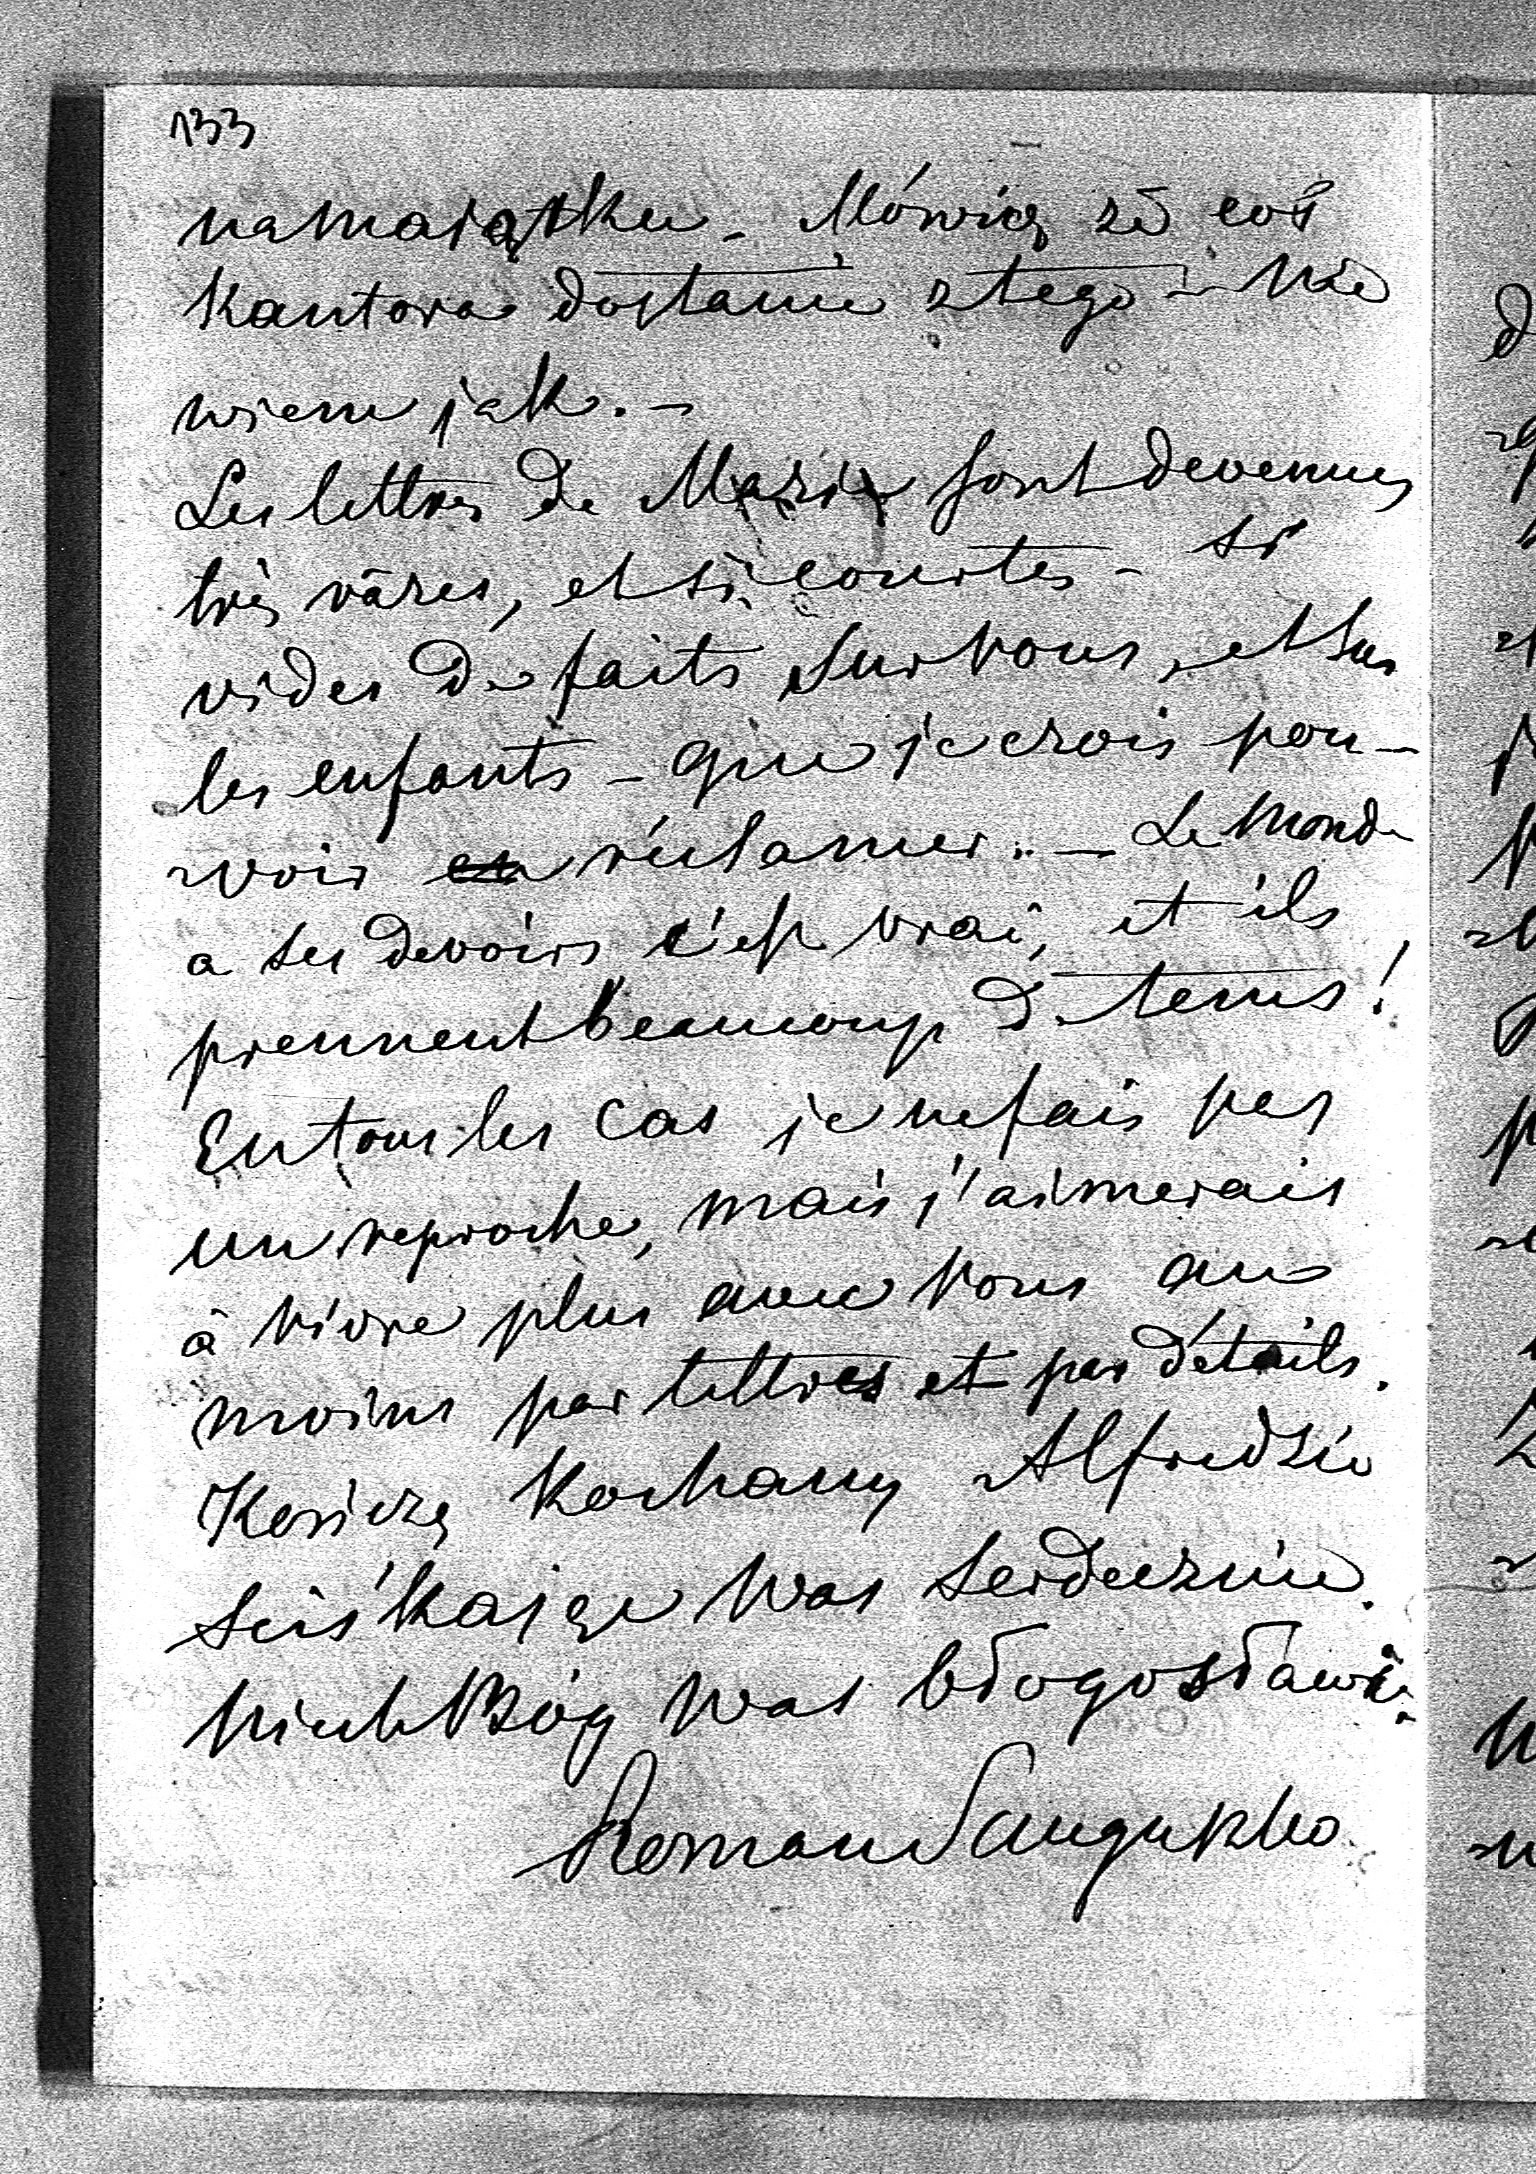 133
na majątku – Mówią że coś
Kantora dostanie z tego – Nie
wiem jak. –
Les lettres de Marie sont devenues
très râres, et si courtes – si
vides de faits sur vous, et sur
les enfants – que je crois pou-
voir réclamer. – Le monde
a ses devoirs c'est vrai, et ils
prennent beaucoup de tems!
En tous les cas je ne fais pas
un reproche, mais j'aimerais
à vivre plus avec vous au
moins par lettres et par détails.
Kończę kochany Alfredzie
sciskając Was serdecznie.
Niech Bóg Was błogosławi.
Roman Sanguszko